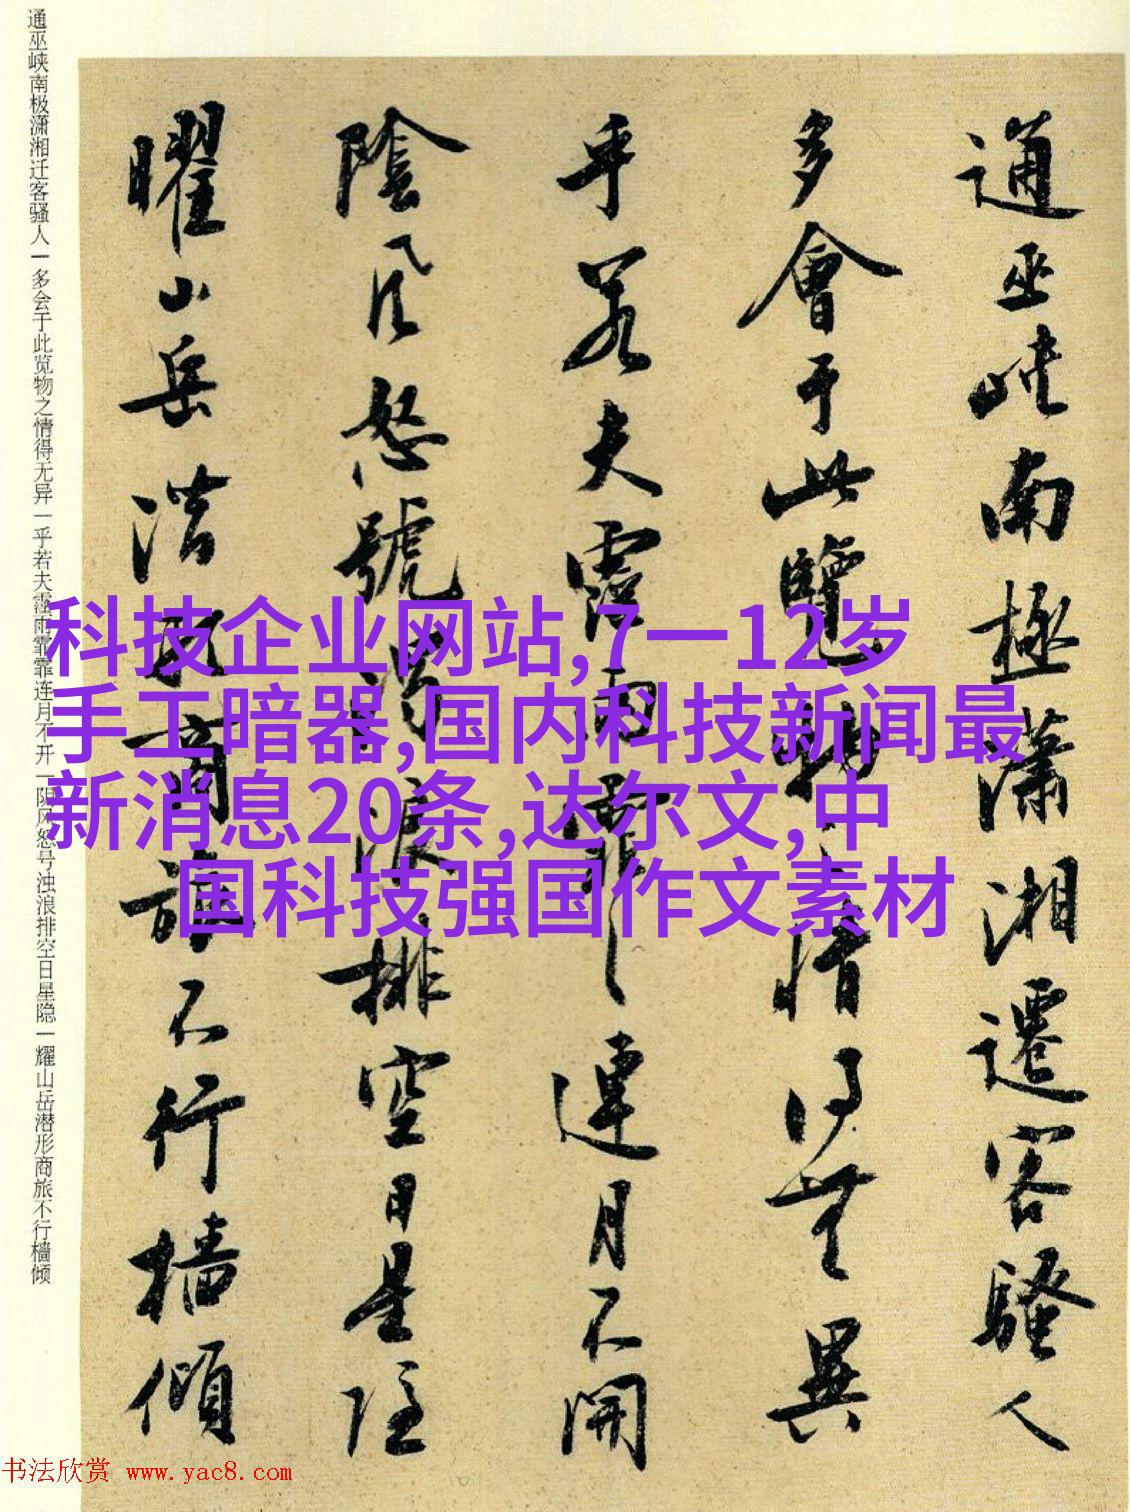 通巫峡南极潇湘迁客骚人一多会于此览物之情得无异一乎若夫霪雨霏霏连月不开一阴风怒号浊浪排空日星隐一耀山岳潜形商旅不行樯倾
通巫峽南極瀟湘遷客騷人
多會于此覽物之情得無異
乎若夫霪雨霏〻連月不開
陰風怒號濁浪排空日星隐
曜山岳潜形商旅不行檣傾
科技企业网站,7一12岁
手工暗器,国内科技新闻最
新消息20条,达尔文,中
国科技强国作文素材
书法欣赏 www.yac8.com